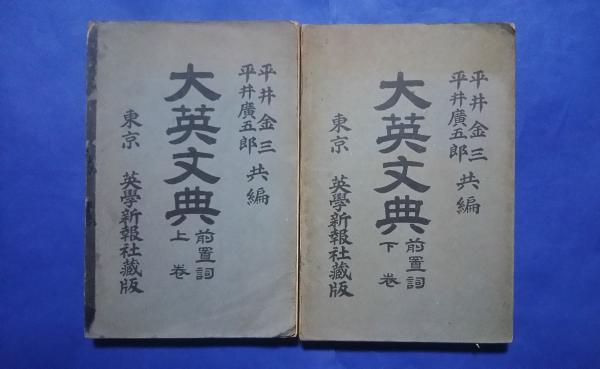 平井金三
平井廣五郎
共編
大英文典
前置詞
上巻
東京
英學新報社藏版
平井金三
平井廣五郎
共編
大英文典
前置詞
下巻
東京
英學新報社藏版